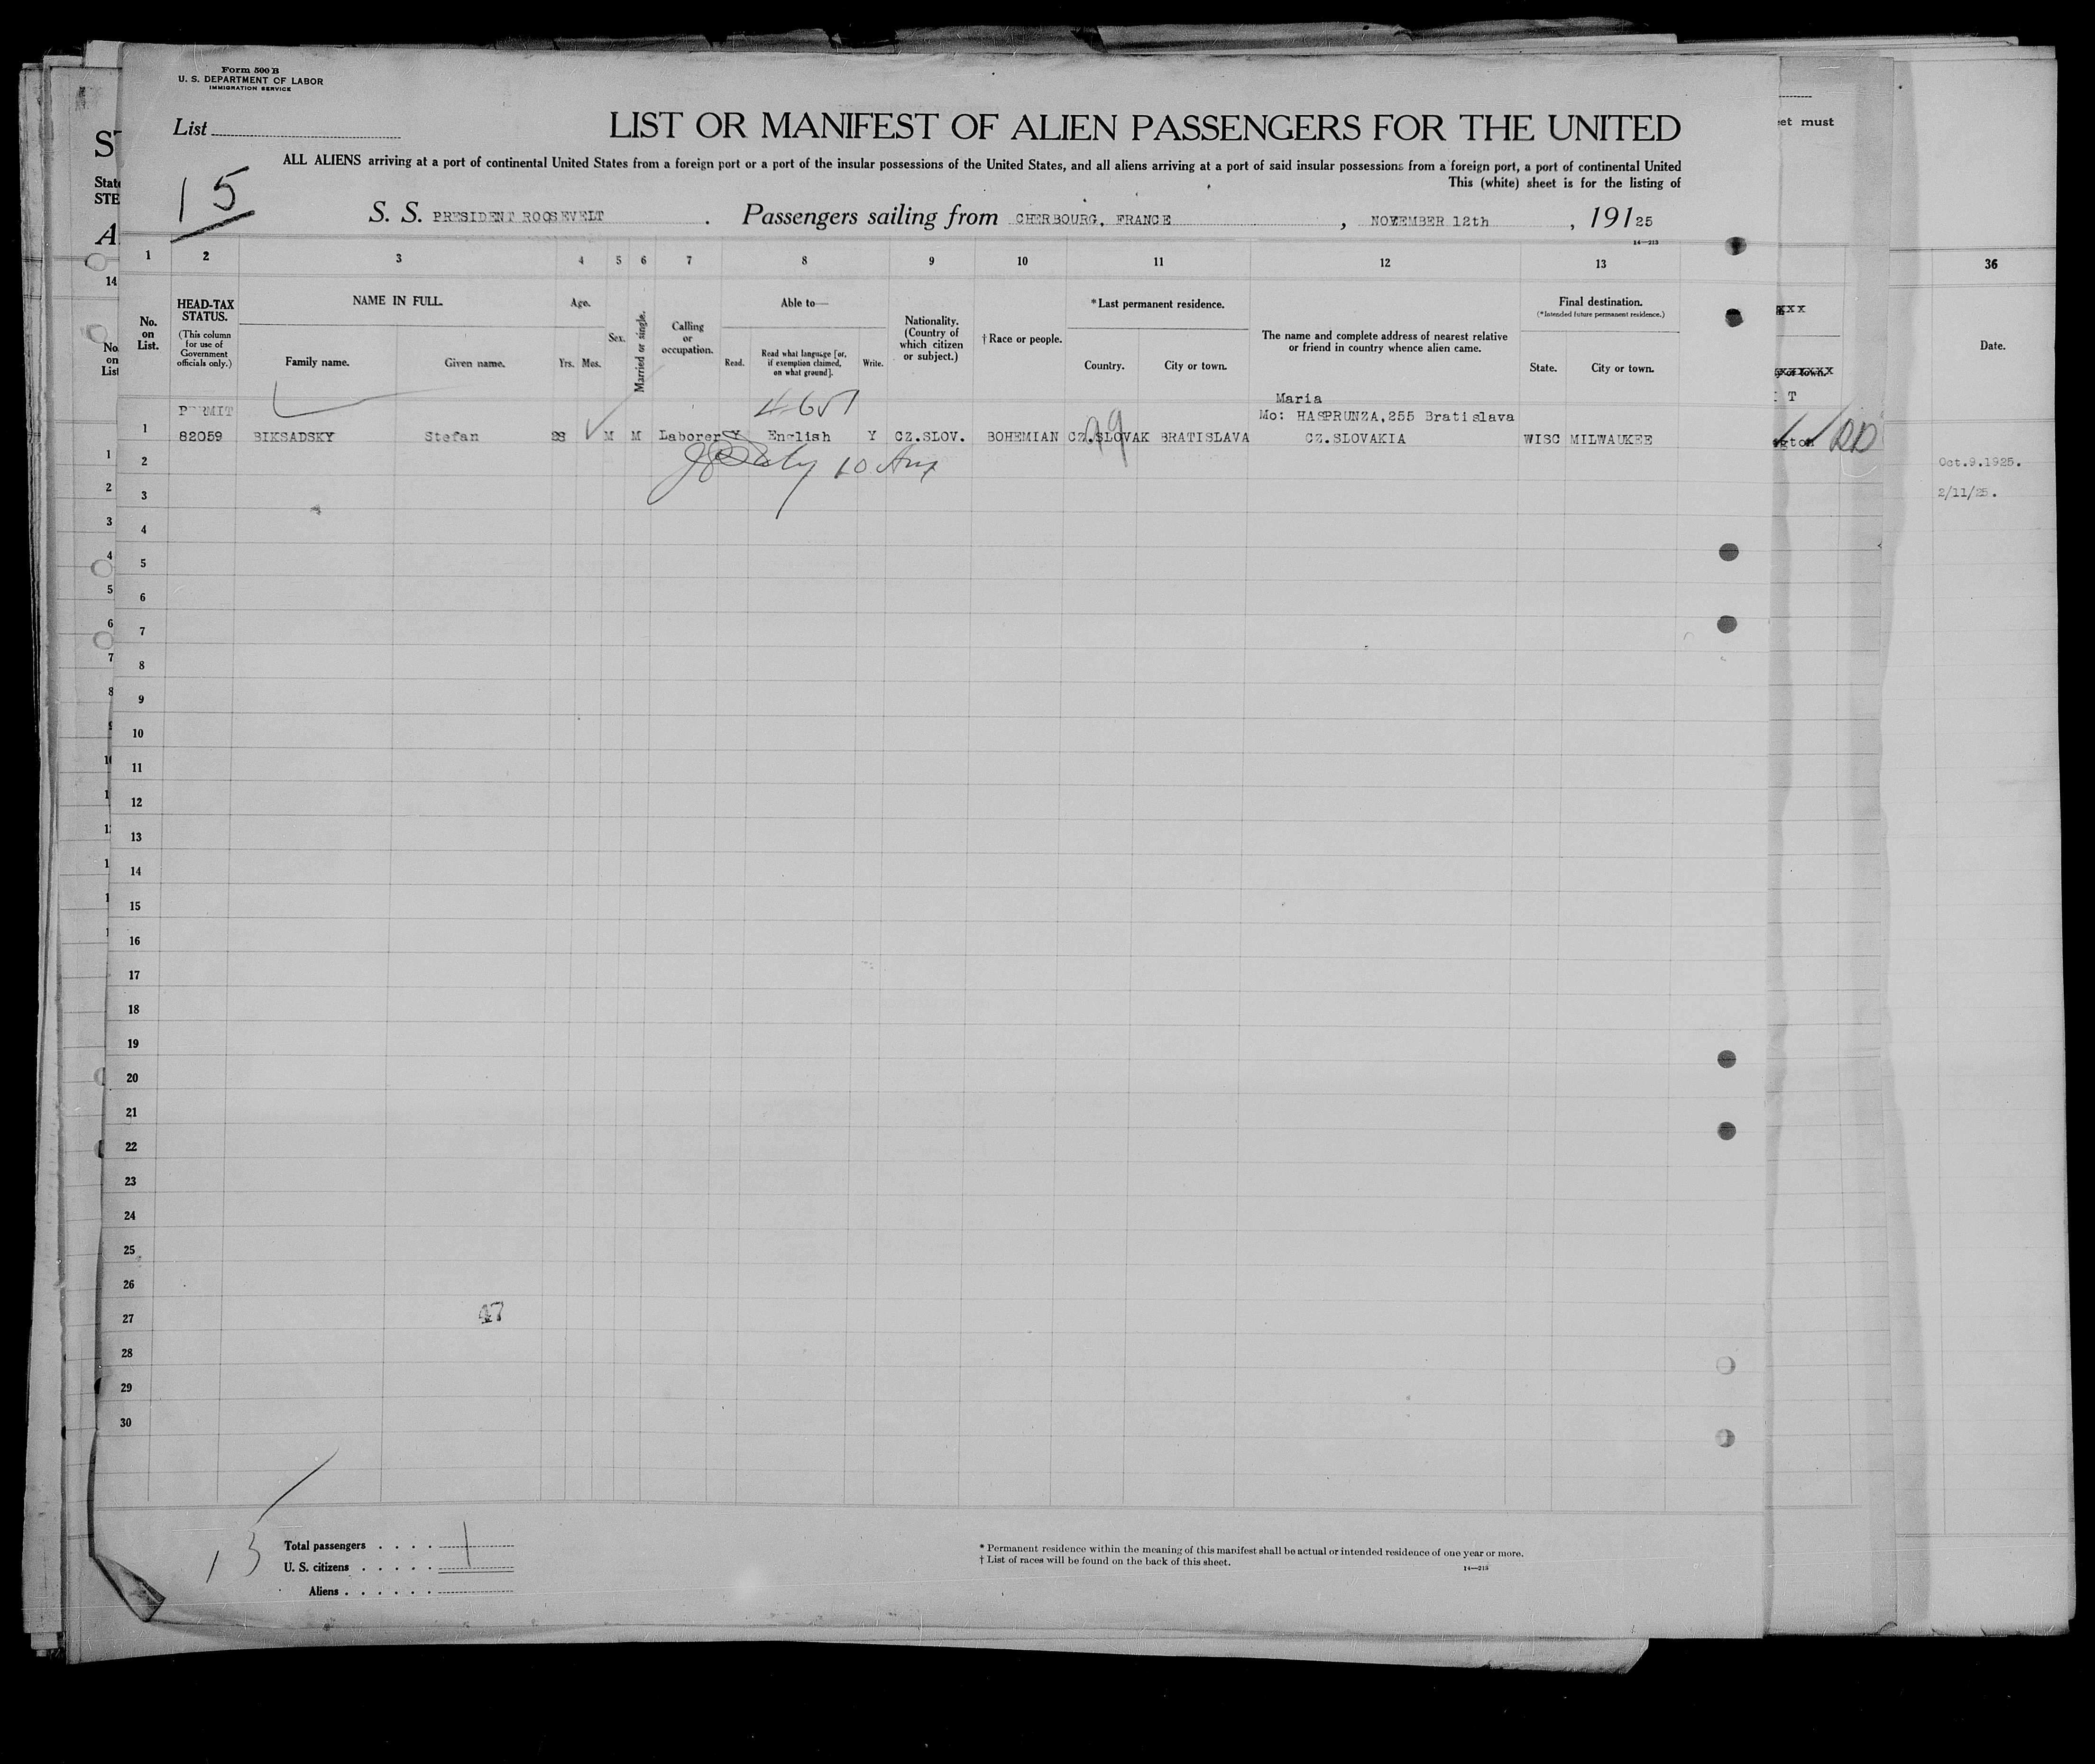 Form 500 B
U. S. DEPARTMENT OF LABOR
IMMIGRATION SERVICE
List
15
LIST OR MANIFEST OF ALIEN PASSENGERS FOR THE UNITED
ALL ALIENS arriving at a port of continental United States from a foreign port or a port of the insular possessions of the United States, and all aliens arriving at a port of said insular possessions from a foreign port, a port of continental United
This (white) sheet is for the listing of
S. S. PRESIDENT ROOSEVELT. Passengers sailing from CHERBOURG, FRANCE, NOVEMBER 12th, 19125
14—213
1 2 3 4 5 6 7 8 9 10 11 12 13
No. on List.
HEAD-TAX STATUS.
(This column for use of Government officials only.)
NAME IN FULL.
Family name. Given name.
Age.
Yrs. Mos.
Sex.
Married or single.
Calling or occupation.
Able to—
Read. Read what language [or, if exemption claimed, on what ground]. Write.
Nationality. (Country of which citizen or subject.)
† Race or people.
* Last permanent residence.
Country. City or town.
The name and complete address of nearest relative or friend in country whence alien came.
Final destination.
(* Intended future permanent residence.)
State. City or town.
PERMIT
Maria
Mo: HASPRUNZA,255 Bratislava
1 82059 BIKSADSKY Stefan 28 M M Laborer Y English Y CZ.SLOV. BOHEMIAN CZ.SLOVAK BRATISLAVA CZ.SLOVAKIA WISC MILWAUKEE
99
10
2
3
4
5
6
7
8
9
10
11
12
13
14
15
16
17
18
19
20
21
22
23
24
25
26
27
28
29
30
47
Total passengers . . . . 1
U. S. citizens . . . . .
Aliens . . . . . .
* Permanent residence within the meaning of this manifest shall be actual or intended residence of one year or more.
† List of races will be found on the back of this sheet.
14—213
et must
36
Date.
Oct.9.1925.
2/11/25.